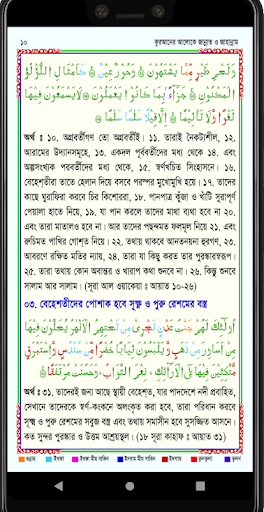 ১০ কুরআনের আলোকে জান্নাত ও জাহান্নাম
وَلَحْمِ طَيْرٍ مِّمَّا يَشْتَهُوْنَ ۞ وَحُوْرٌ عِيْنٌ ۞ كَاَمْثَالِ اللُّؤْلُؤِ
الْمَكْنُوْنِ ۞ جَزَآءً بِمَا كَانُوْا يَعْمَلُوْنَ ۞ لَايَسْمَعُوْنَ فِيْهَا
لَغْوًا وَّلَا تَاْثِيْمًا ۞ اِلَّا قِيْلًا سَلٰمًا سَلٰمًا ۞
অর্থ ঃ ১০. অগ্রবর্তীগণ তো অগ্রবর্তীই। ১১. তারাই নৈকট্যশীল, ১২.
আরামের উদ্যানসমূহে, ১৩. একদল পূর্ববর্তীদের মধ্য থেকে ১৪. এবং
অল্পসংখ্যক পরবর্তীদের মধ্য থেকে, ১৫. স্বর্ণখচিত সিংহাসনে। ১৬.
বেহেশ্তীরা তাতে হেলান দিয়ে বসবে পরস্পর মুখোমুখি হয়ে। ১৭. তাদের
কাছে ঘুরাফিরা করবে চির কিশোররা, ১৮. পানপাত্র কুঁজা ও খাঁটি সুরাপূর্ণ
পেয়ালা হাতে নিয়ে, ১৯. যা পান করলে তাদের মাথা ব্যথা হবে না ২০.
এবং তারা মাতালও হবে না। আর তাদের পছন্দমত ফলমূল নিয়ে ২১. এবং
রুচিমত পাখির গোশ্ত নিয়ে। ২২. তথায় থাকবে আনতনয়না হুরগণ, ২৩.
আবরণে রক্ষিত মতির ন্যায়, ২৪. তারা যা কিছু করত তার পুরস্কারস্বরূপ।
২৫. তারা তথায় কোন অবান্তর ও খারাপ কথা শুনবে না। ২৬. কিন্তু শুনবে
সালাম আর সালাম। (সূরা আল ওয়াকেয়া ঃ আয়াত ১০-২৬)
০৩. বেহেশতীদের পোশাক হবে সূক্ষ্ম ও পুরু রেশমের বস্ত্র
اُولٰٓئِكَ لَهُمْ جَنّٰتُ عَدْنٍ تَجْرِىْ مِنْ تَحْتِهِمُ الْاَنْهٰرُ يُحَلَّوْنَ فِيْهَا
مِنْ اَسَاوِرَ مِنْ ذَهَبٍ وَّيَلْبَسُوْنَ ثِيَابًا خُضْرًا مِّنْ سُنْدُسٍ وَّاِسْتَبْرَقٍ
مُّتَّكِئِيْنَ فِيْهَا عَلَى الْاَرَآئِكِ، نِعْمَ الثَّوَابُ، وَحَسُنَتْ مُرْتَفَقًا ۞
অর্থ ঃ ৩১. তাদেরই জন্য আছে স্থায়ী বেহেশ্ত, যার পাদদেশে নদী প্রবাহিত,
সেখানে তাদেরকে স্বর্ণ-কংকনে অলংকৃত করা হবে, তারা পরিধান করবে
সূক্ষ্ম ও পুরু রেশমের সবুজ বস্ত্র এবং তথায় সমাসীন হবে সুসজ্জিত আসনে।
কত সুন্দর পুরস্কার ও উত্তম আশ্রয়স্থল। (১৮ সূরা কাহাফ ঃ আয়াত ৩১)
গুন্নাহ ইখফা ইখফা মীম সাকিন ইদগাম মীম সাকিন ইদগাম কলকলা কলব